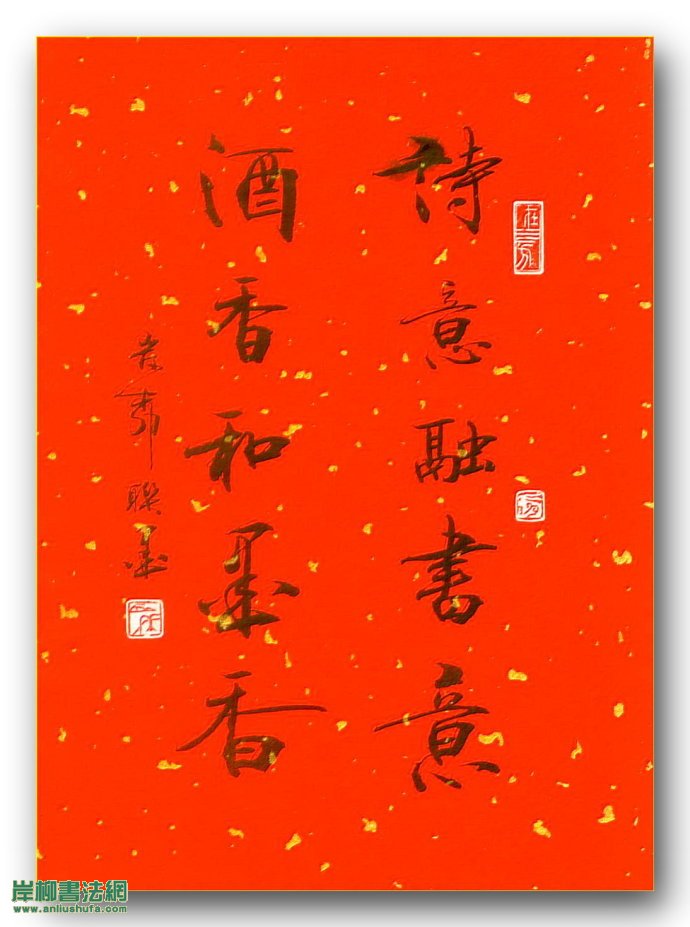 詩意融書意
酒香和墨香
聯墨
岸柳書法網
www.anliushufa.com